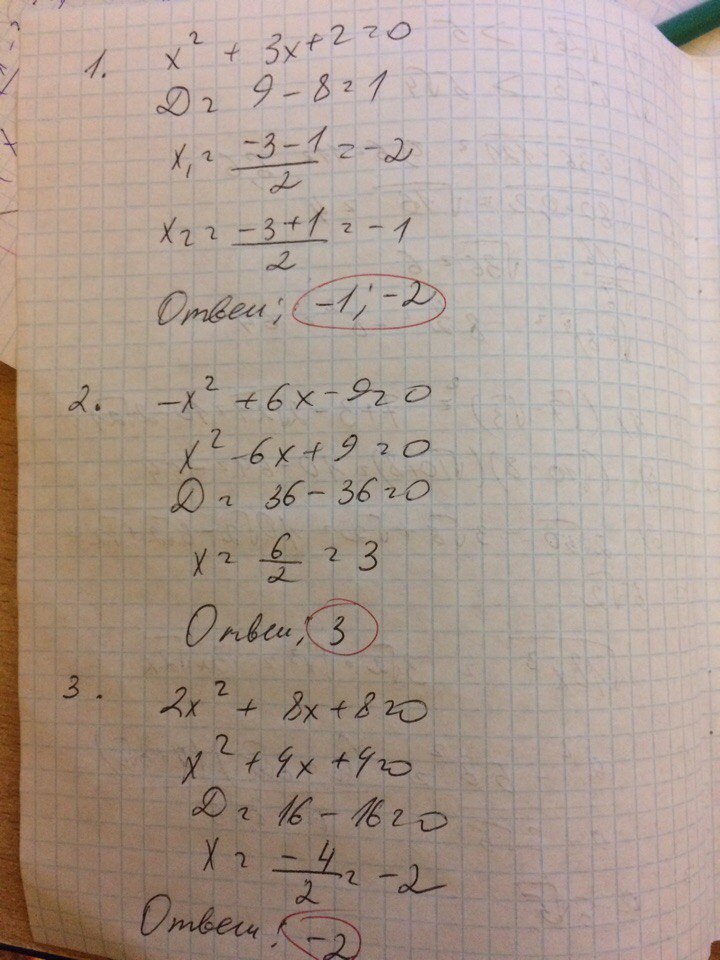 1. x² + 3x+2=0
D= 9-8=1
x₁= \frac{-3-1}{2} = -2
x₂= \frac{-3+1}{2} = -1
Ответ: -1; -2
2. -x² +6x-9=0
x²-6x+9=0
D= 36-36=0
x= \frac{6}{2} = 3
Ответ: 3
3. 2x²+ 8x+8=0
x²+4x+4=0
D= 16-16=0
x= \frac{-4}{2}= -2
Ответ: -2